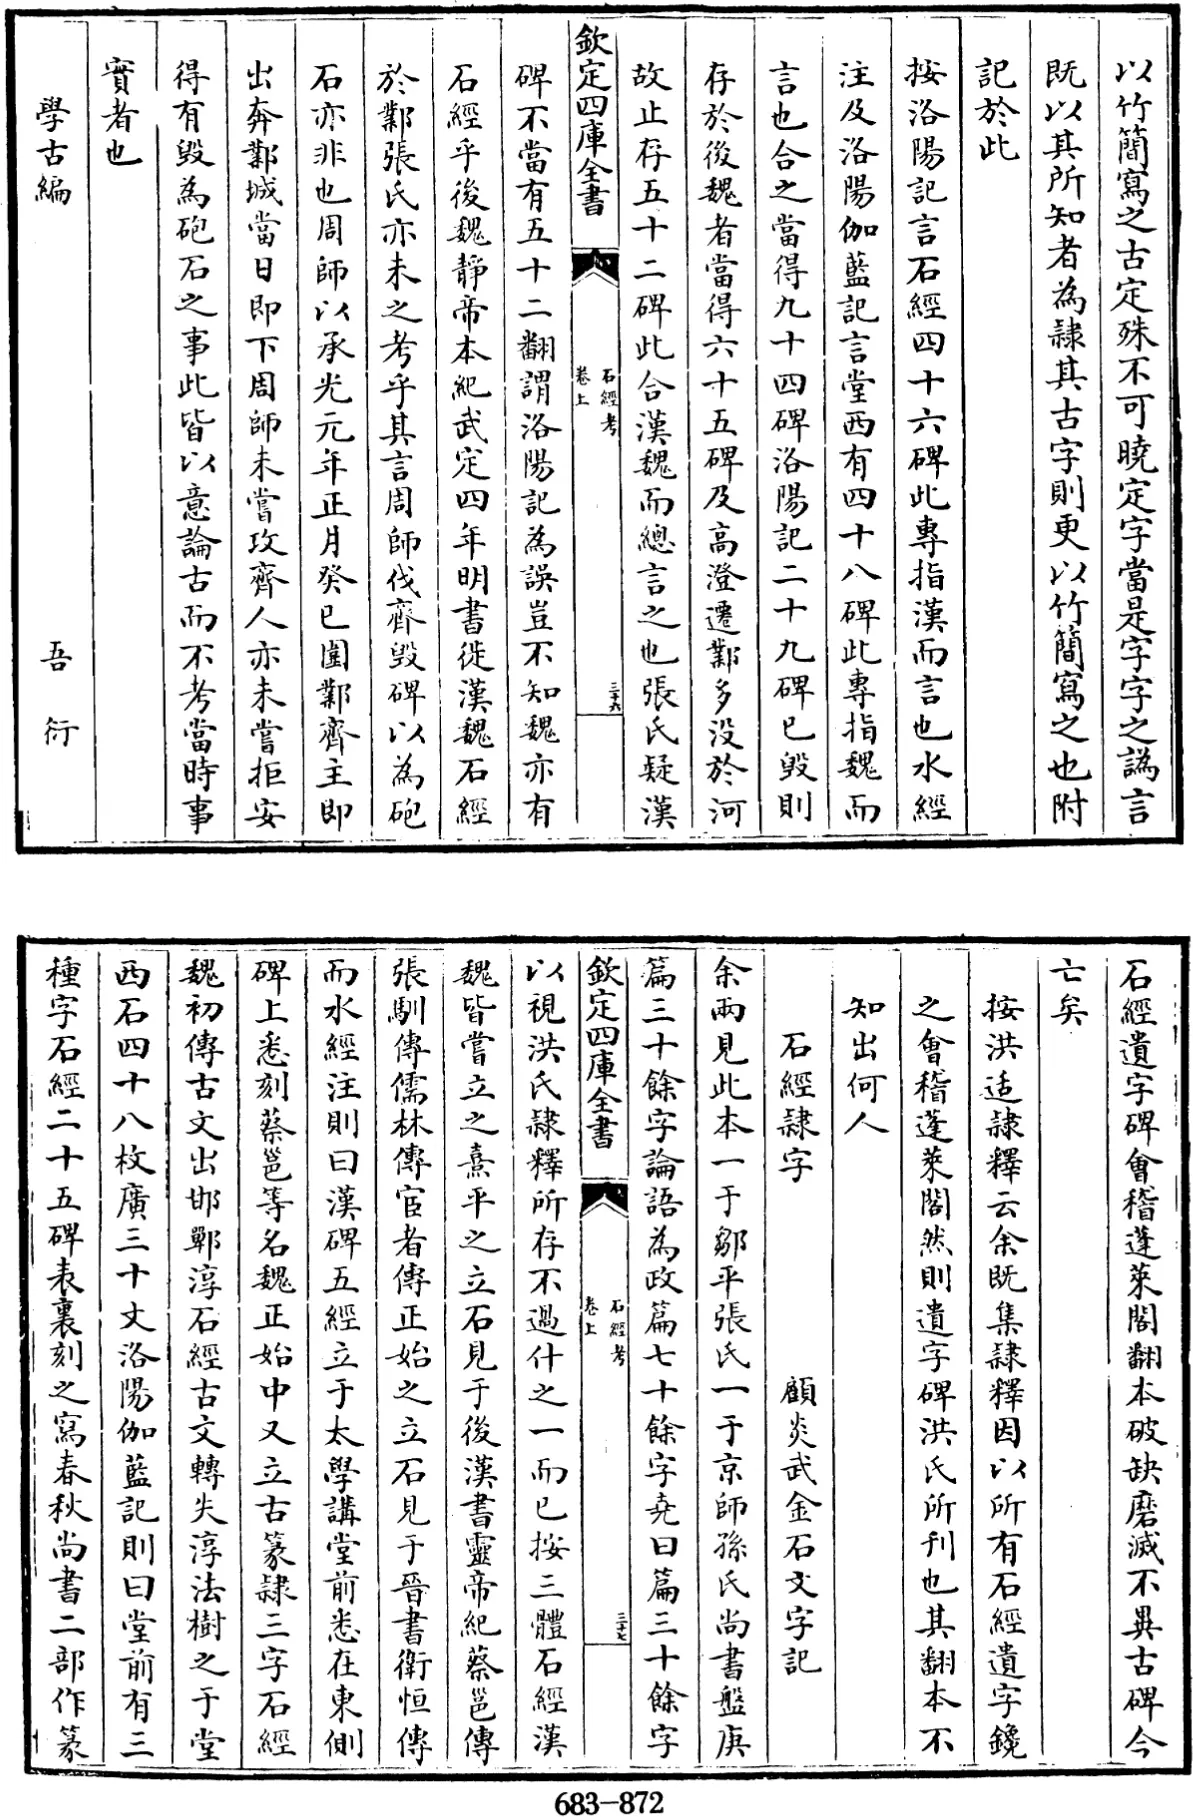 以竹簡寫之古定殊不可曉定字當是字字之譌言
既以其所知者為隷其古字則更以竹簡寫之也附
記於此
按洛陽記言石經四十六碑此專指漢而言也水經
注及洛陽伽藍記言堂西有四十八碑此專指魏而
言也合之當得九十四碑洛陽記二十九碑已毀則
存於後魏者當得六十五碑及高澄遷鄴多没於河
故止存五十二碑此合漢魏而總言之也張氏疑漢
欽定四庫全書
石經考
卷上
三十六
碑不當有五十二翻謂洛陽記為誤豈不知魏亦有
石經乎後魏靜帝本紀武定四年明書徙漢魏石經
於鄴張氏亦未之考乎其言周師伐齊毀碑以為砲
石亦非也周師以承光元年正月癸巳圍鄴齊主即
出奔鄴城當日即下周師未嘗攻齊人亦未嘗拒安
得有毀為砲石之事此皆以意論古而不考當時事
實者也
學古編 吾衍
石經遺字碑會稽蓬萊閣翻本破缺磨滅不異古碑今
亡矣
按洪适隷釋云余既集隷釋因以所有石經遺字鑱
之會稽蓬萊閣然則遺字碑洪氏所刊也其翻本不
知出何人
石經隷字 顧炎武金石文字記
余兩見此本一于鄒平張氏一于京師孫氏尚書盤庚
篇三十餘字論語為政篇七十餘字堯曰篇三十餘字
欽定四庫全書
石經考
卷上
三十七
以視洪氏隷釋所存不過什之一而已按三體石經漢
魏皆嘗立之熹平之立石見于後漢書靈帝紀蔡邕傳
張馴傳儒林傳宦者傳正始之立石見于晉書衛恒傳
而水經注則曰漢碑五經立于太學講堂前悉在東側
碑上悉刻蔡邕等名魏正始中又立古篆隷三字石經
魏初傳古文出邯鄲淳石經古文轉失淳法樹之于堂
西石四十八枚廣三十丈洛陽伽藍記則曰堂前有三
種字石經二十五碑表裏刻之寫春秋尚書二部作篆
683-872